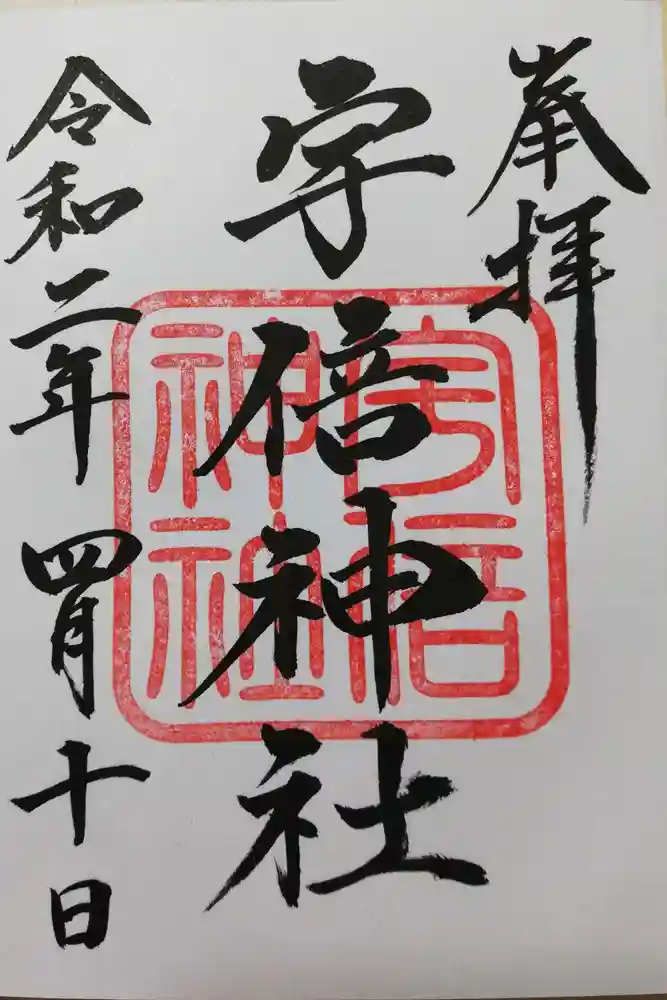 奉拝
宇倍神社
令和二年四月十日
宇倍
神社